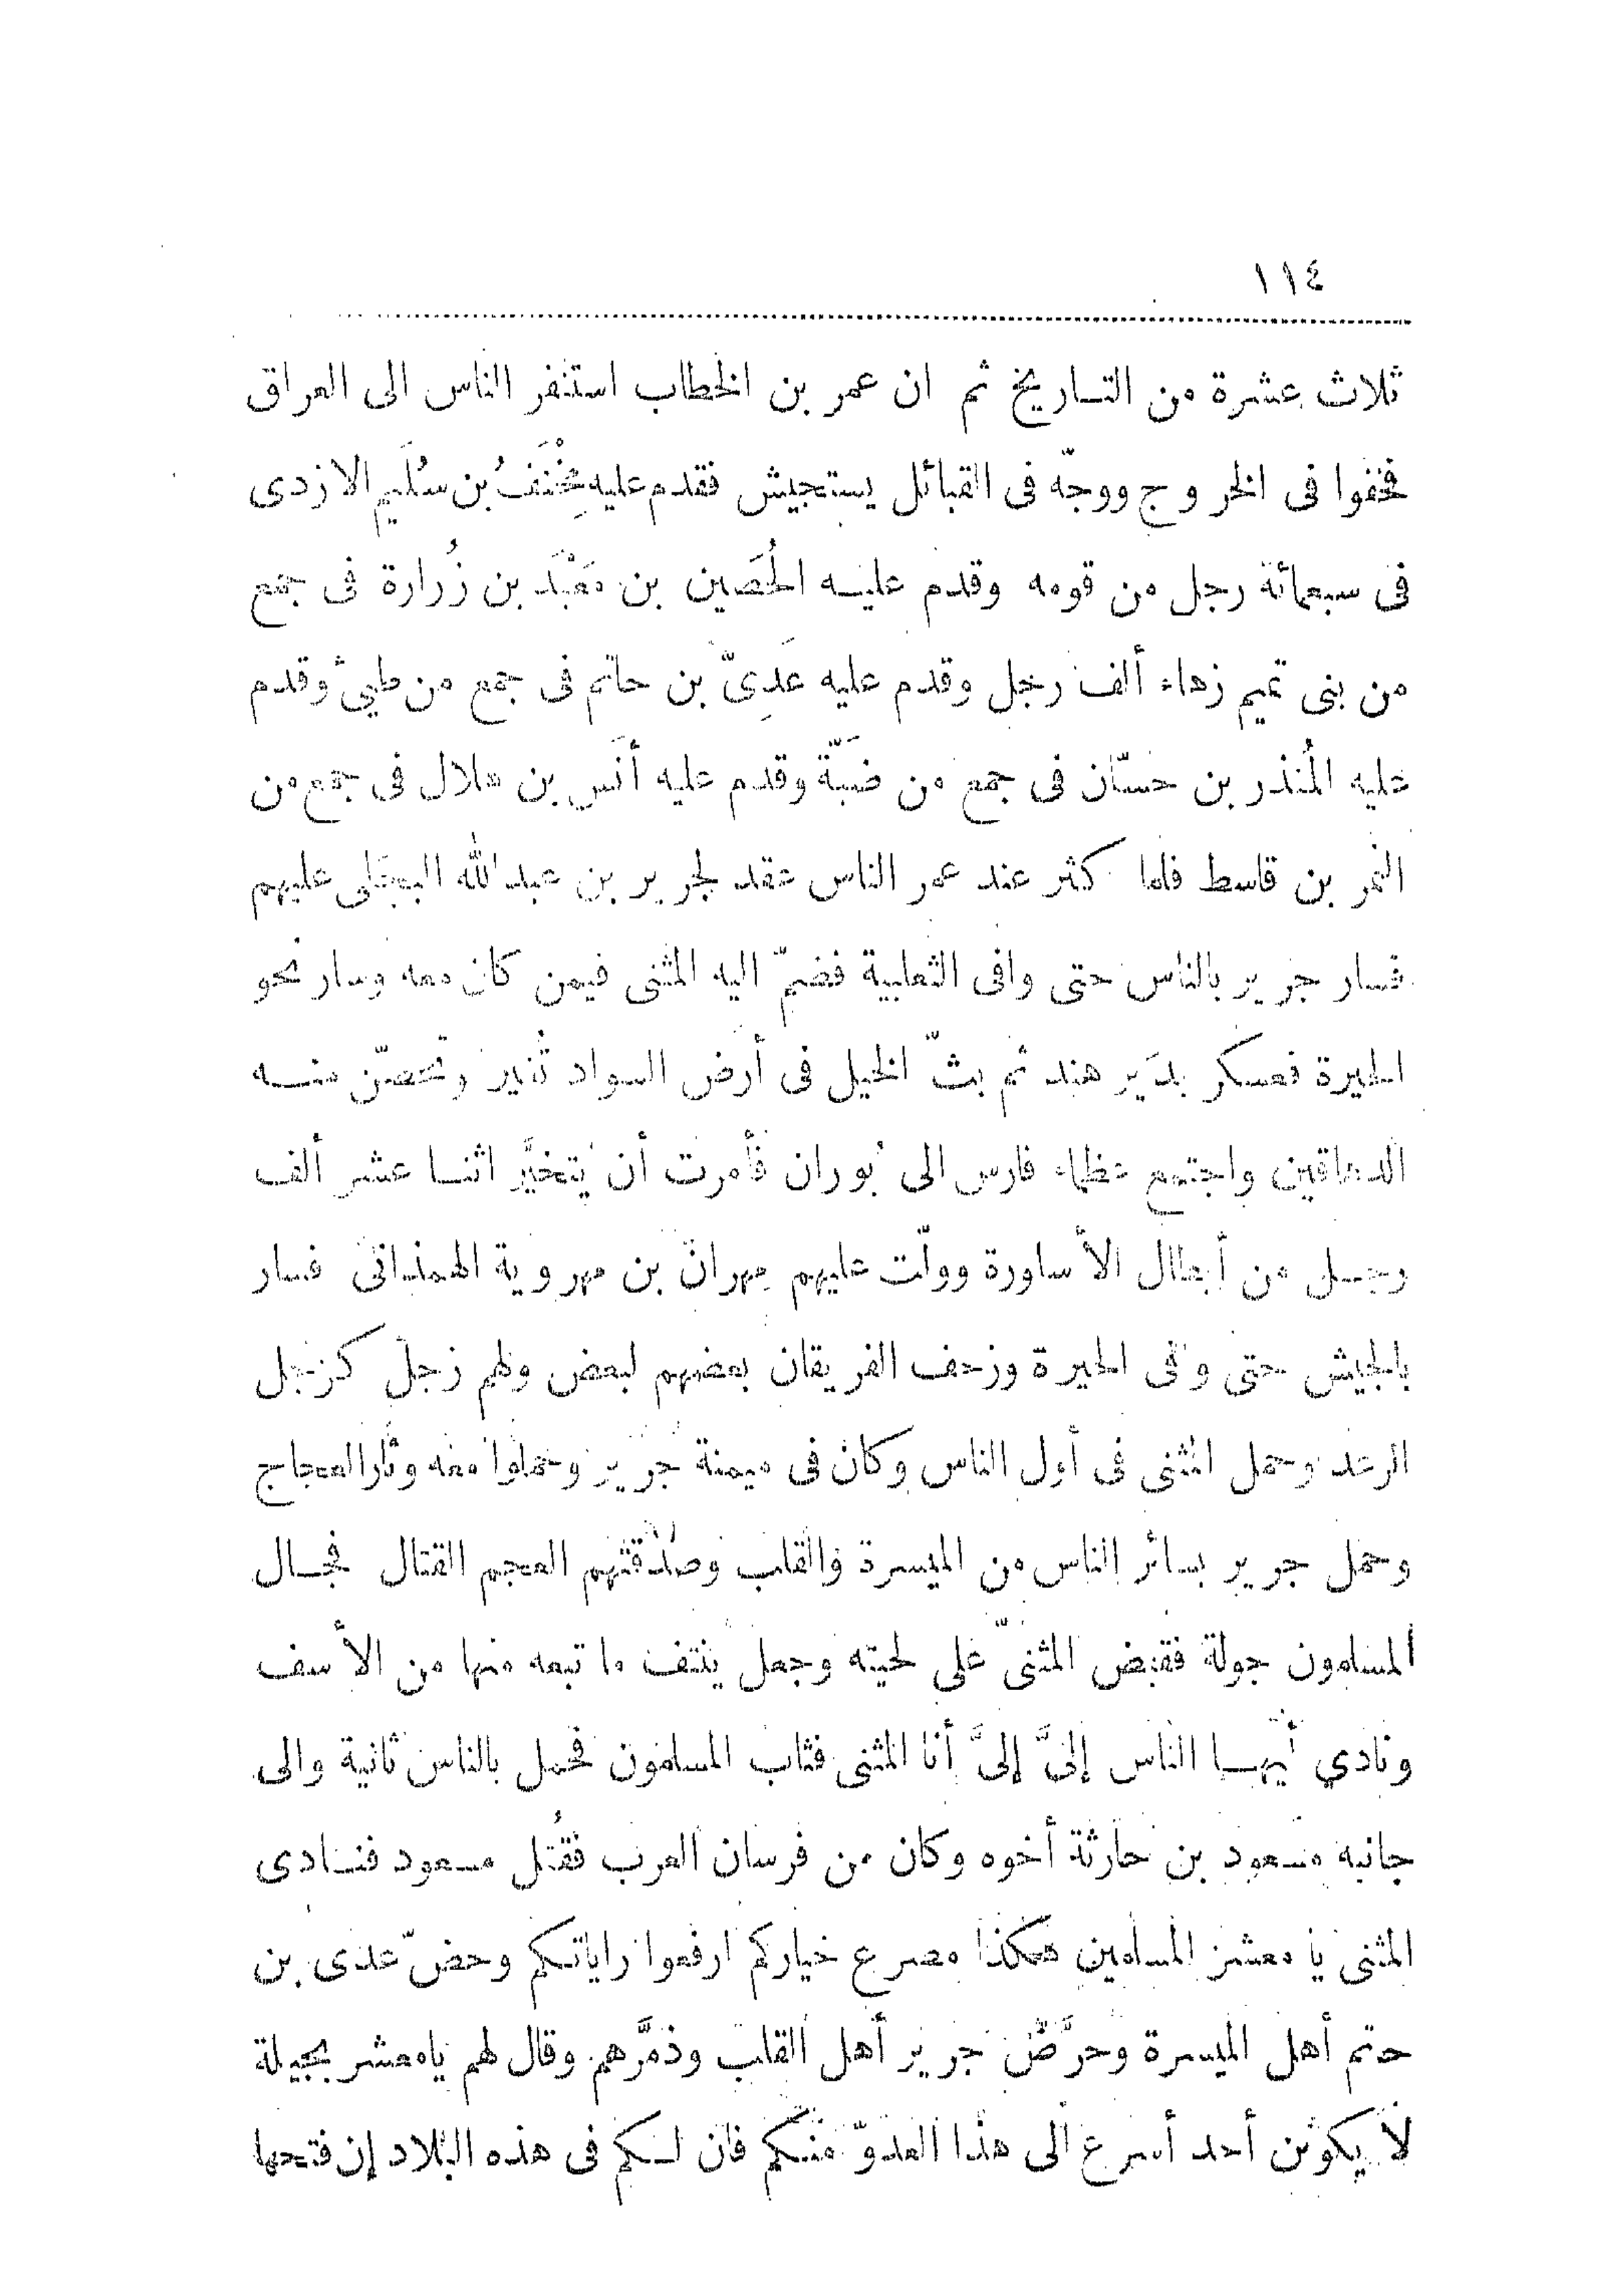 ١١٤
ثلاث عشرة من التاريخ ثم ان عمر بن الخطاب استنفر الناس الى العراق
فخفوا فى الخروج ووجّه فى القبائل يستجيش فقدم عليه مِخْنَفُ بن سُلَيم الازدى
فى سبعمائة رجل من قومه وقدم عليه الحُصَين بن مَعْبَد بن زُرارة فى جمع
من بنى تميم زهاء ألف رجل وقدم عليه عَدِىّ بن حاتم فى جمع من طيئ وقدم
عليه المُنذر بن حسّان فى جمع من ضَبّة وقدم عليه أنَس بن هلال فى جمع من
النمر بن قاسط فلما كثر عند عمر الناس عقد لجرير بن عبد الله البجَلى عليهم
فسار جرير بالناس حتى وافى الثعلبية فضمّ اليه المثنى فيمن كان معه وسار نحو
الحيرة فعسكر بدَير هند ثم بثّ الخيل فى أرض السواد تُغير وتحصّن منه
الدهاقين واجتمع عظماء فارس الى بُوران فأمرت أن يُتخيَّر اثنا عشر ألف
رجل من أبطال الأساورة وولّت عليهم مِهران بن مهروية الهمذانى فسار
بالجيش حتى وافى الحيرة وزحف الفريقان بعضهم لبعض ولهم زجل كزجل
الرعد وحمل المثنى فى أول الناس وكان فى ميمنة جرير وحملوا معه وثار العجاج
وحمل جرير بسائر الناس من الميسرة والقلب وصدّقتهم العجم القتال فجال
المسلمون جولة فقبض المثنىّ على لحيته وجعل ينتف ما تبعه منها من الأسف
ونادي أيّها الناس إلىَّ إلىَّ أنا المثنى فثاب المسلمون فحمل بالناس ثانية والى
جانبه مسعود بن حارثة أخوه وكان من فرسان العرب فقُتل مسعود فنادى
المثنى يا معشر المسلمين هكذا مصرع خياركم ارفعوا راياتكم وحضّ عدى بن
حاتم أهل الميسرة وحرَّض جرير أهل القلب وذمَّرهم وقال لهم يا معشر بجيلة
لا يكونن أحد أسرع الى هذا العدوّ منكم فان لكم فى هذه البلاد إن فتحها